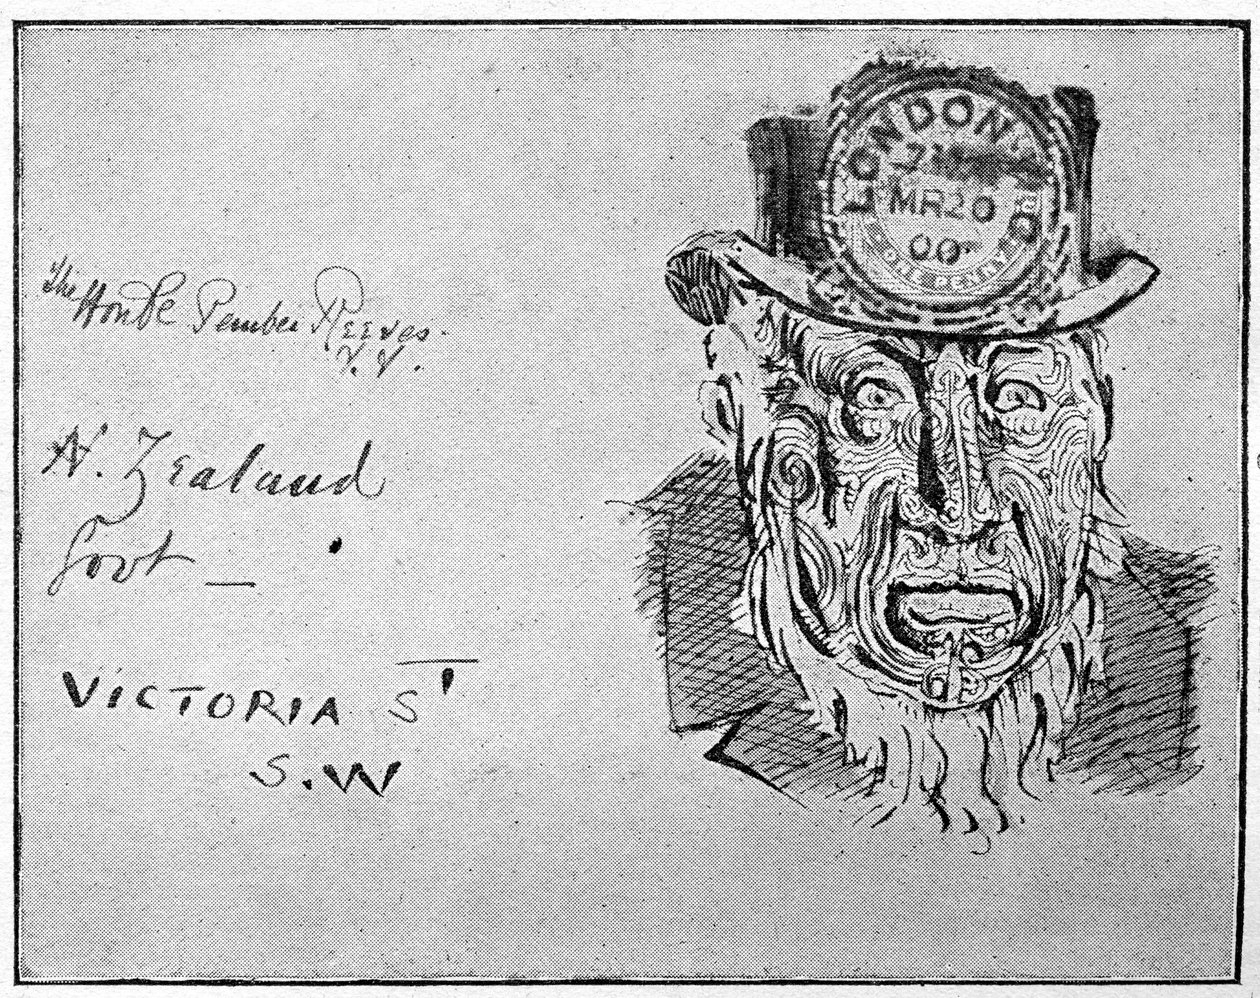 The Honble Pember Reeves.
N. Zealand
Govt —
VICTORIA St
S.W
LONDON
MR 20
00